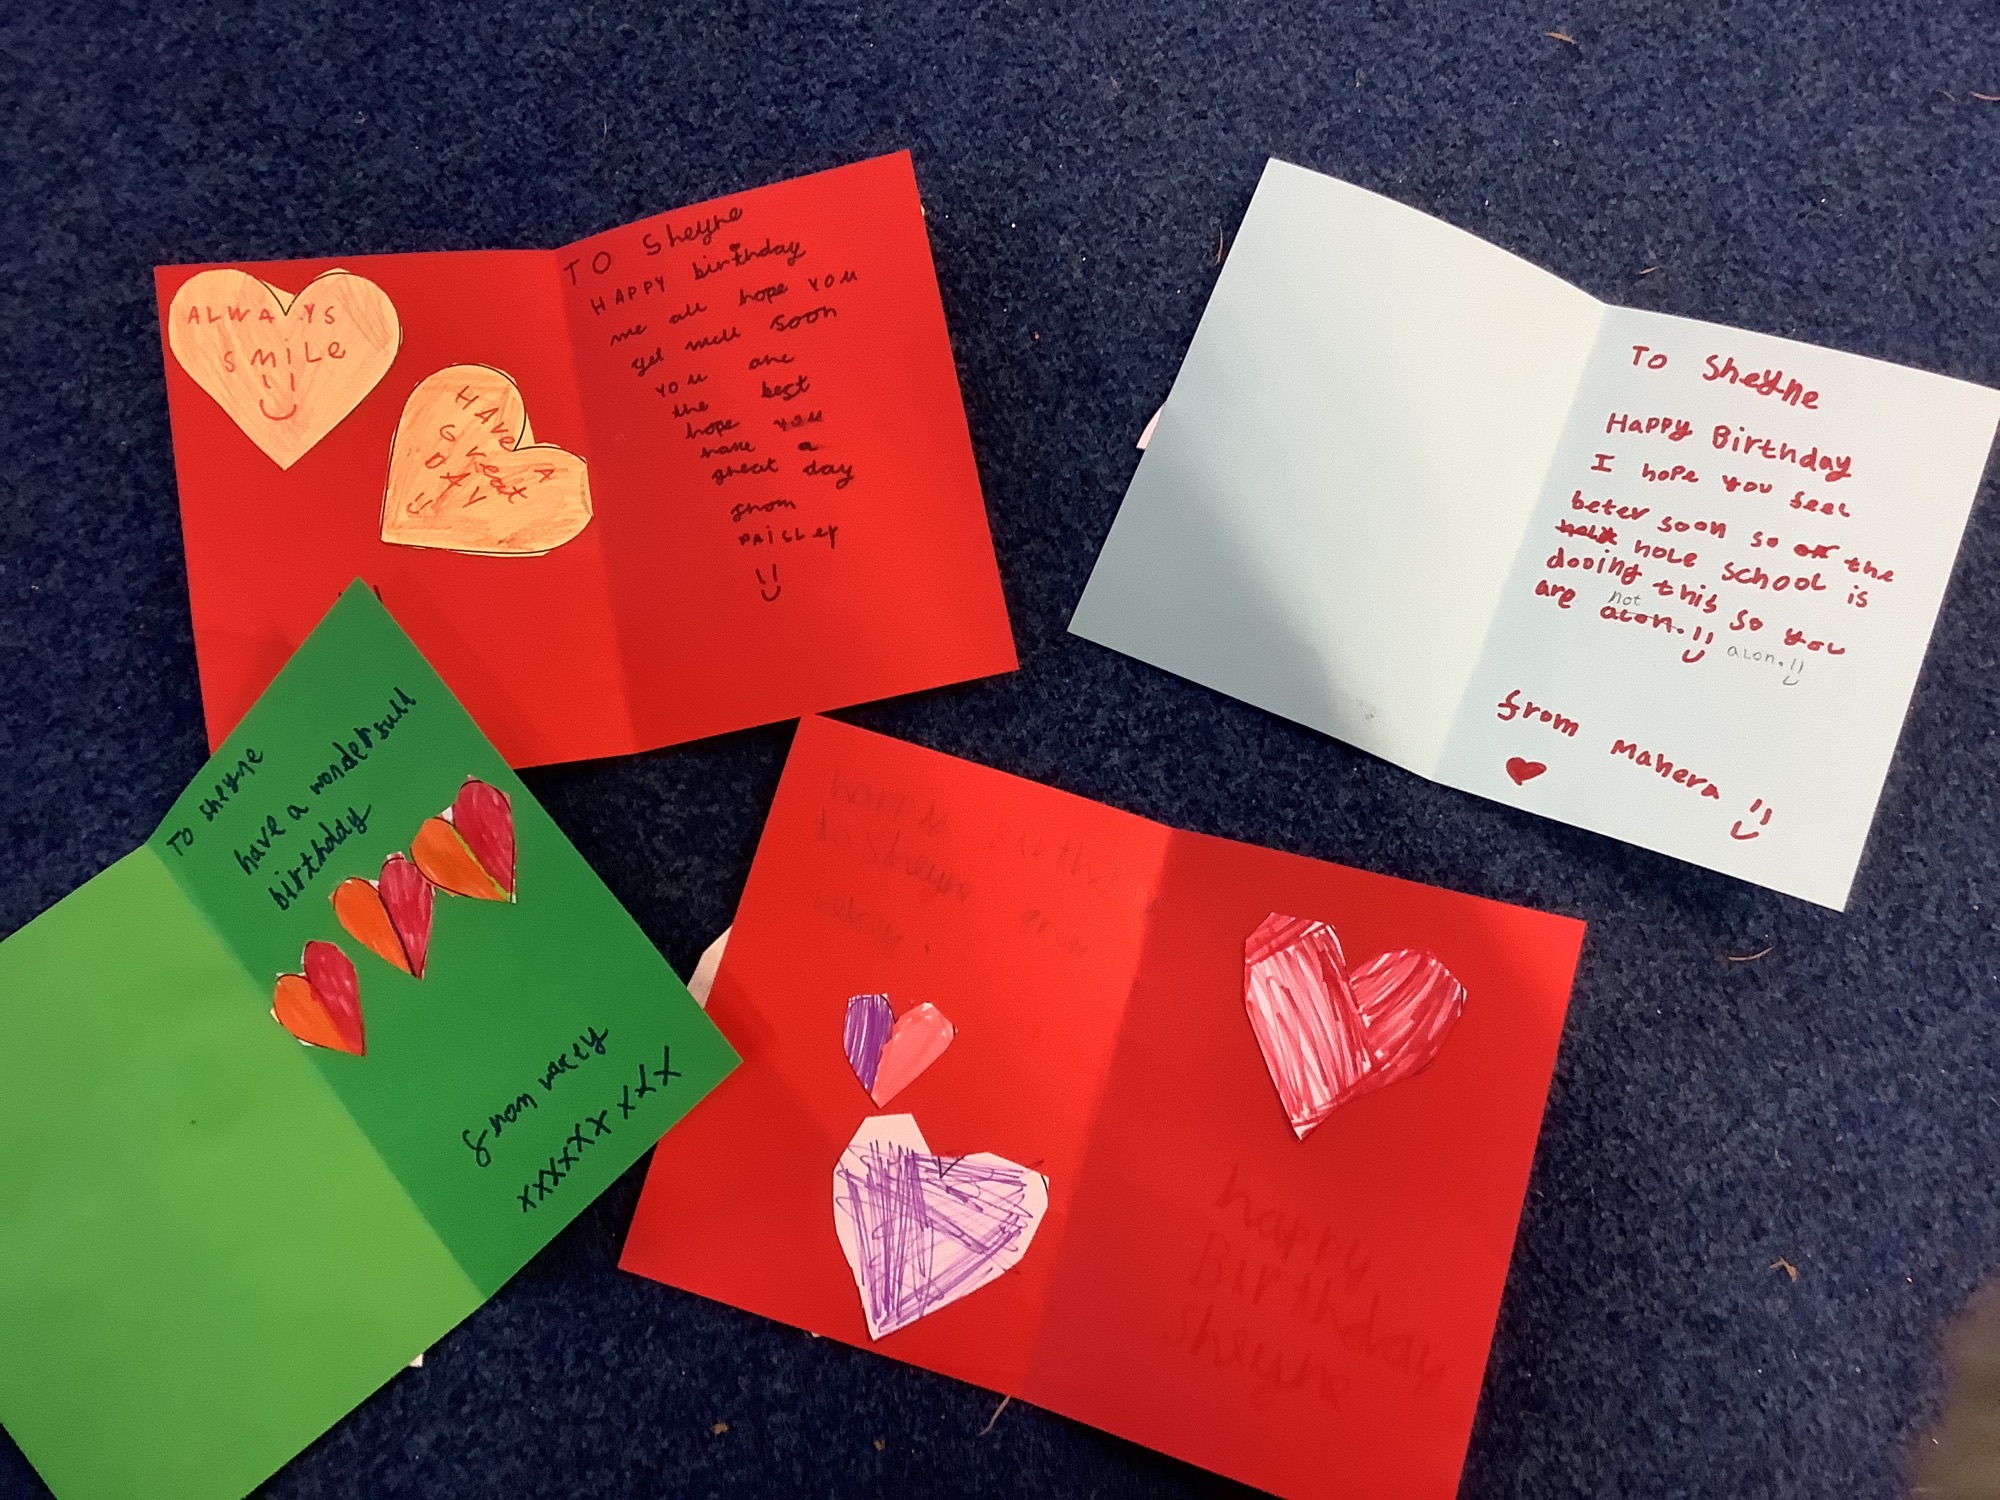 ALWAYS
SMILE
HAVE A
Great
DAY
TO Sheyne
HAPPY birthday
we all hope you
get well soon
you are
the best
hope you
have a
great day
from
PAISLEY
To Sheyne
Happy Birthday
I hope you feel
beter soon so the
hole school is
dooing this so you
are not
alon.
from Mahera
To sheyne
have a wonderfull
birthday
from
xxxxxx xxx
birthday
to Sheyne
happy
Birthday
Sheyne